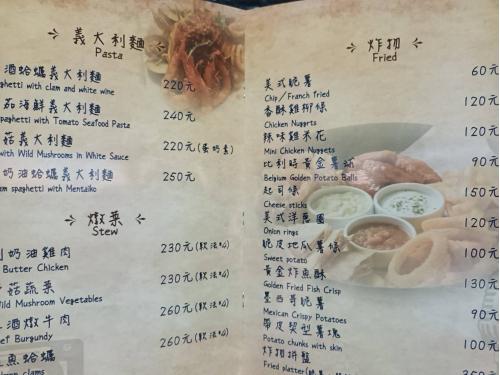 義大利麵
Pasta
酒蛤蠣義大利麵 220元
ghetti with clam and white wine
茄海鮮義大利麵 240元
paghetti with Tomato Seafood Pasta
菇義大利麵 220元(蛋奶素)
with Wild Mushrooms in White Sauce
奶油蛤蠣義大利麵 250元
am spaghetti with Mentaiko
燉菜
Stew
奶油雞肉 230元
Butter Chicken
菇蔬菜 230元
Wild Mushroom Vegetables
酒燉牛肉 260元
eef Burgundy
魚蛤蠣 260元
clams
炸物
Fried
美式脆薯 60元
Chip/Franch fried
香酥雞柳條 120元
Chicken Nuggrts
辣味雞米花 120元
Mini Chicken Nuggets
比利時黃金薯球 90元
Belgium Golden Potato Balls
起司條 150元
Cheese sticks
美式洋蔥圈 120元
Onion rings
脆皮地瓜薯條 100元
Sweet potato
黃金炸魚酥 130元
Golden Fried Fish Crisp
墨西哥脆薯 90元
Mexican Crispy Potatoes
帶皮契型薯塊 100元
Potato chunks with skin
炸物拼盤 350元
Fried platter